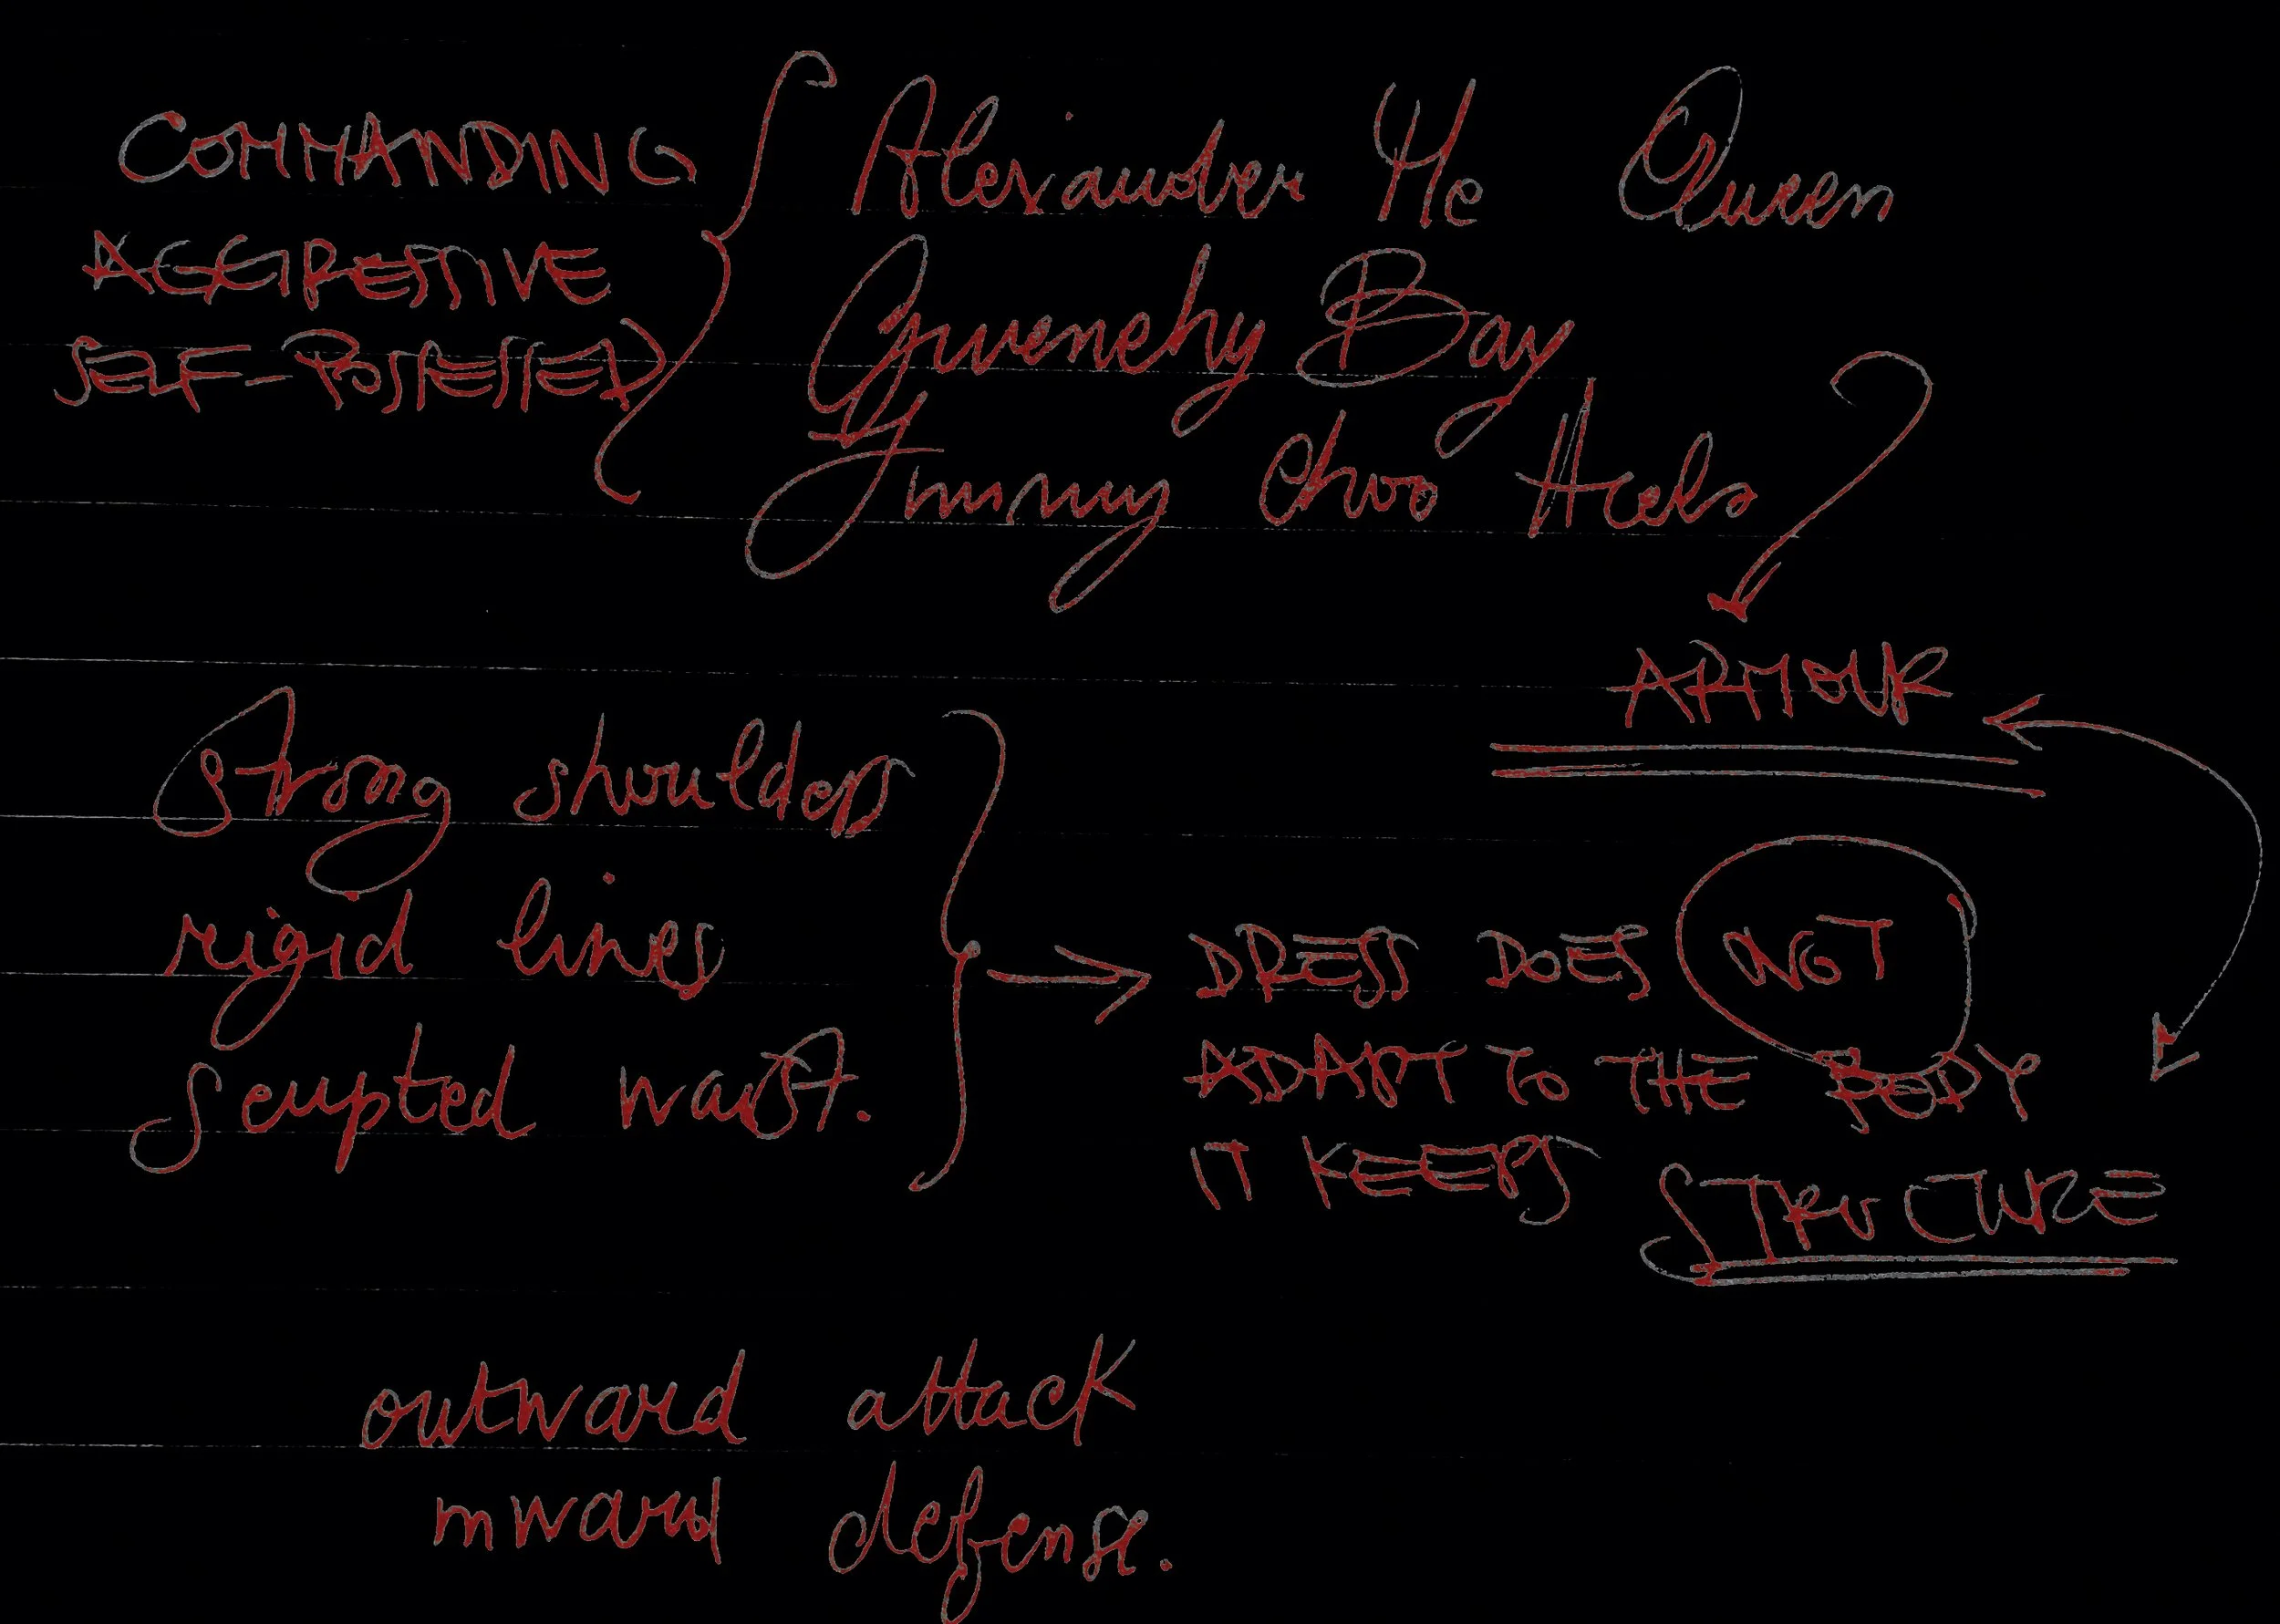 COMMANDING
AGGRESSIVE
SELF-POSSESSED
Alexander Mc Queen
Givenchy Bag
Jimmy Choo Heels
ARMOUR
strong shoulders
rigid lines
scupted waist.
DRESS DOES NOT
ADAPT TO THE BODY
IT KEEPS STRUCTURE
outward attack
inward defense.